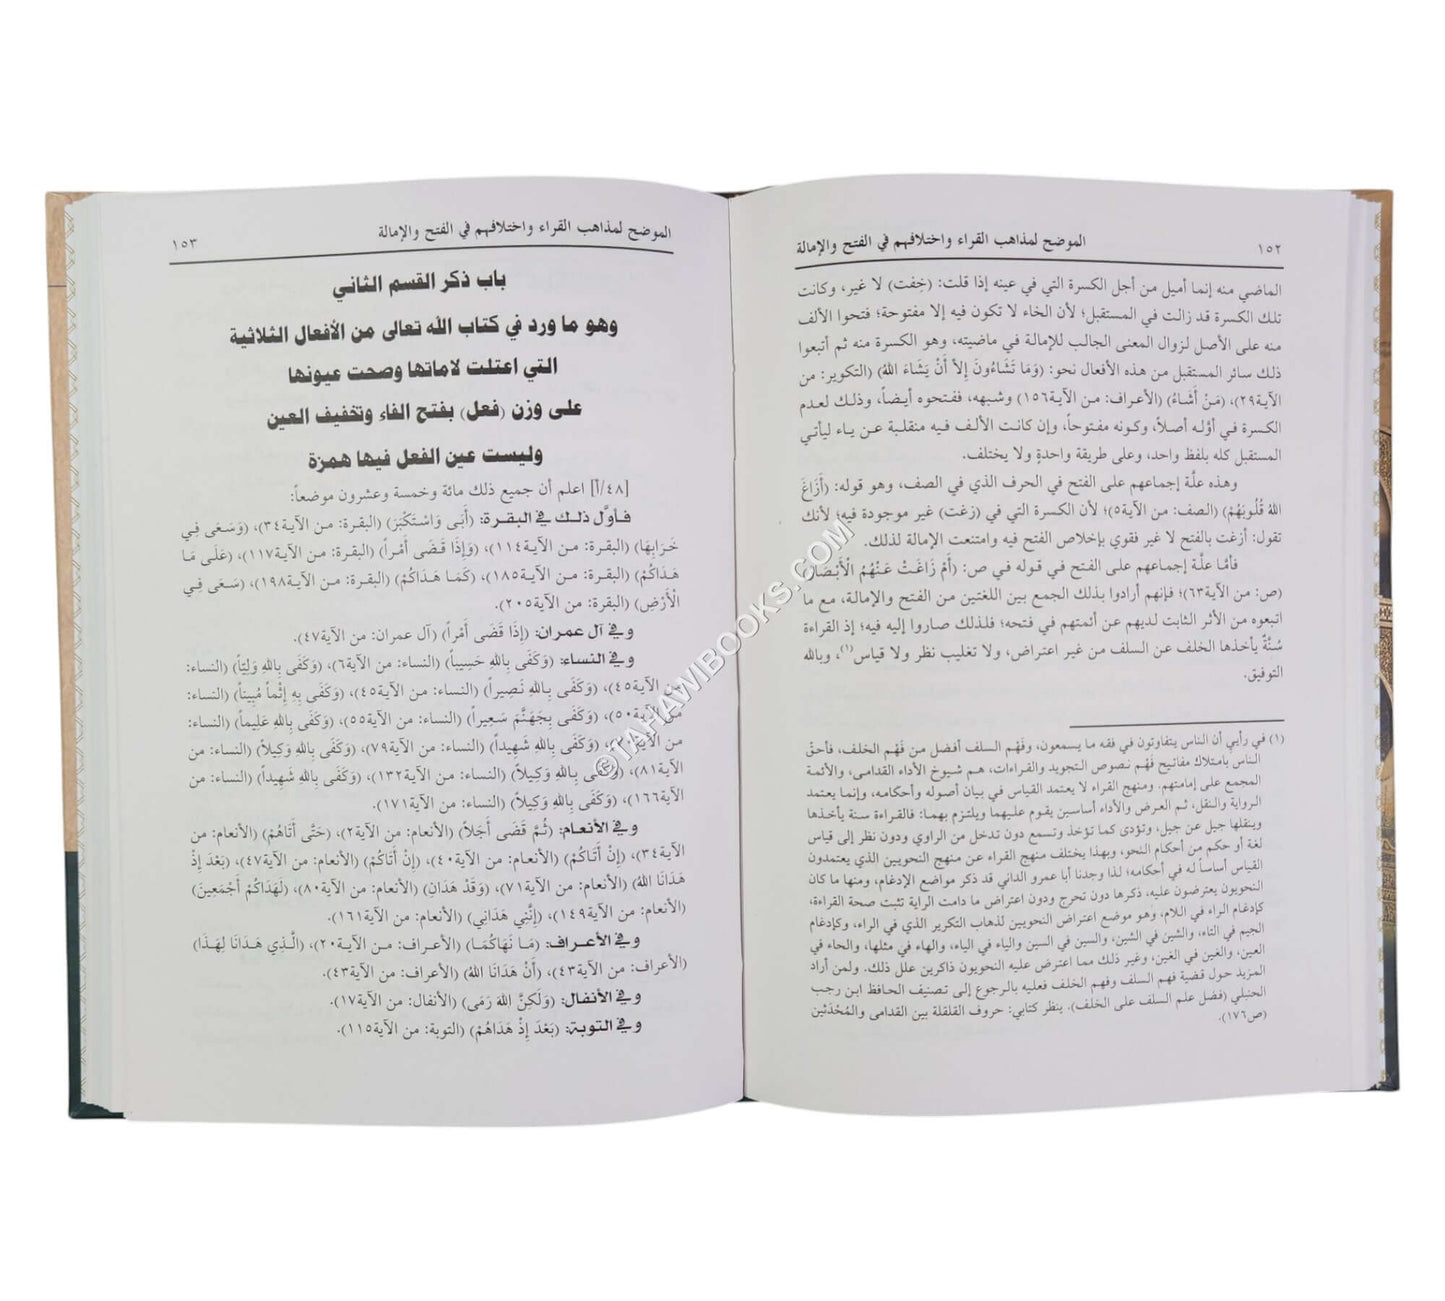 ١٥٢ الموضح لمذاهب القراء واختلافهم في الفتح والإمالة
الماضي منه إنما أميل من أجل الكسرة التي في عينه إذا قلت: (خِفت) لا غير، وكانت
تلك الكسرة قد زالت في المستقبل؛ لأن الخاء لا تكون فيه إلا مفتوحة؛ فتحوا الألف
منه على الأصل لزوال المعنى الجالب للإمالة في ماضيته، وهو الكسرة منه ثم أتبعوا
ذلك سائر المستقبل من هذه الأفعال نحو: (وَمَا تَشَاءُونَ إِلاَّ أَنْ يَشَاءَ اللهُ) (التكوير: من
الآية٢٩)، (مَنْ أَشَاءُ) (الأعراف: من الآية١٥٦) وشبهه، ففتحوه أيضاً، وذلك لعدم
الكسرة في أوّله أصلاً، وكونه مفتوحاً، وإن كانت الألف فيه منقلبة عن ياء ليأتي
المستقبل كله بلفظ واحد، وعلى طريقة واحدةٍ ولا يختلف.
وهذه علَّة إجماعهم على الفتح في الحرف الذي في الصف، وهو قوله: (أَزَاغَ
اللهُ قُلُوبَهُمْ) (الصف: من الآية٥)؛ لأن الكسرة التي في (زغت) غير موجودة فيه؛ لأنك
تقول: أزغت بالفتح لا غير فقوي بإخلاص الفتح فيه وامتنعت الإمالة لذلك.
فأمّا علَّة إجماعهم على الفتح في قوله في ص: (أَمْ زَاغَتْ عَنْهُمُ الْأَبْصَارُ)
(ص: من الآية٦٣)؛ فإنهم أرادوا بذلك الجمع بين اللغتين من الفتح والإمالة، مع ما
اتبعوه من الأثر الثابت لديهم عن أئمتهم في فتحه؛ فلذلك صاروا إليه فيه؛ إذ القراءة
سُنَّةٌ يأخذها الخلف عن السلف من غير اعتراض، ولا تغليب نظر ولا قياس(١)، وبالله
التوفيق.
(١) في رأيي أن الناس يتفاوتون في فقه ما يسمعون، وفَهْم السلف أفضل من فَهْم الخلف، فأحقّ
الناس بامتلاك مفاتيح فَهْم نصوص التجويد والقراءات، هم شيوخ الأداء القدامى، والأئمة
المجمع على إمامتهم. ومنهج القراء لا يعتمد القياس في بيان أصوله وأحكامه، وإنما يعتمد
الرواية والنقل، ثم العرض والأداء أساسين يقوم عليهما ويلتزم بهما: فالقراءة سنة يأخذها
وينقلها جيل عن جيل، وتؤدى كما تؤخذ وتسمع دون تدخل من الراوي ودون نظر إلى قياس
لغة أو حكم من أحكام النحو، وبهذا يختلف منهج القراء عن منهج النحويين الذي يعتمدون
القياس أساساً له في أحكامه؛ لذا وجدنا أبا عمرو الداني قد ذكر مواضع الإدغام، ومنها ما كان
النحويون يعترضون عليه، ذكرها دون تحرج ودون اعتراض ما دامت الراية تثبت صحة القراءة،
كإدغام الراء في اللام، وهو موضع اعتراض النحويين لذهاب التكرير الذي في الراء، وكإدغام
الجيم في التاء، والشين في الشين، والسين في السين والياء في الياء، والهاء في مثلها، والحاء في
العين، والغين في الغين، وغير ذلك مما اعترض عليه النحويون ذاكرين علل ذلك. ولمن أراد
المزيد حول قضية فهم السلف وفهم الخلف فعليه بالرجوع إلى تصنيف الحافظ ابن رجب
الحنبلي (فضل علم السلف على الخلف). ينظر كتابي: حروف القلقلة بين القدامى والمُحْدَثين
(ص١٧٦).
الموضح لمذاهب القراء واختلافهم في الفتح والإمالة ١٥٣
باب ذكر القسم الثاني
وهو ما ورد في كتاب الله تعالى من الأفعال الثلاثية
التي اعتلت لاماتها وصحت عيونها
على وزن (فعل) بفتح الفاء وتخفيف العين
وليست عين الفعل فيها همزة
[٤٨/أ] اعلم أن جميع ذلك مائة وخمسة وعشرون موضعاً:
فأوَّل ذلك في البقرة: (أَبَى وَاسْتَكْبَرَ) (البقرة: من الآية٣٤)، (وَسَعَى فِي
خَرَابِهَا) (البقرة: من الآية١١٤)، (وَإِذَا قَضَى أَمْراً) (البقرة: من الآية١١٧)، (عَلَى مَا
هَدَاكُمْ) (البقرة: من الآية١٨٥)، (كَمَا هَدَاكُمْ) (البقرة: من الآية١٩٨)، (سَعَى فِي
الْأَرْضِ) (البقرة: من الآية٢٠٥).
وفي آل عمران: (إِذَا قَضَى أَمْراً) (آل عمران: من الآية٤٧).
وفي النساء: (وَكَفَى بِاللهِ حَسِيباً) (النساء: من الآية٦)، (وَكَفَى بِاللهِ وَلِيّاً) (النساء:
من الآية٤٥)، (وَكَفَى بِاللهِ نَصِيراً) (النساء: من الآية٤٥)، (وَكَفَى بِهِ إِثْماً مُبِيناً) (النساء:
من الآية٥٠)، (وَكَفَى بِجَهَنَّمَ سَعِيراً) (النساء: من الآية٥٥)، (وَكَفَى بِاللهِ عَلِيماً) (النساء:
من الآية)، (وَكَفَى بِاللهِ شَهِيداً) (النساء: من الآية٧٩)، (وَكَفَى بِاللهِ وَكِيلاً) (النساء: من
الآية٨١)، (وَكَفَى بِاللهِ وَكِيلاً) (النساء: من الآية١٣٢)، (وَكَفَى بِاللهِ شَهِيداً) (النساء: من
الآية١٦٦)، (وَكَفَى بِاللهِ وَكِيلاً) (النساء: من الآية١٧١).
وفي الأنعام: (ثُمَّ قَضَى أَجَلاً) (الأنعام: من الآية٢)، (حَتَّى أَتَاهُمْ) (الأنعام: من
الآية٣٤)، (إِنْ أَتَاكُمْ) (الأنعام: من الآية٤٠)، (إِنْ أَتَاكُمْ) (الأنعام: من الآية٤٧)، (بَعْدَ إِذْ
هَدَانَا اللهُ) (الأنعام: من الآية٧١)، (وَقَدْ هَدَانِ) (الأنعام: من الآية٨٠)، (لَهَدَاكُمْ أَجْمَعِينَ)
(الأنعام: من الآية١٤٩)، (إِنَّنِي هَدَانِي) (الأنعام: من الآية١٦١).
وفي الأعراف: (مَا نَهَاكُمَا) (الأعراف: من الآية٢٠)، (الَّذِي هَدَانَا لِهَذَا)
(الأعراف: من الآية٤٣)، (أَنْ هَدَانَا اللهُ) (الأعراف: من الآية٤٣).
وفي الأنفال: (وَلَكِنَّ اللهَ رَمَى) (الأنفال: من الآية١٧).
وفي التوبة: (بَعْدَ إِذْ هَدَاهُمْ) (التوبة: من الآية١١٥).
©TAHAWIBOOKS.COM